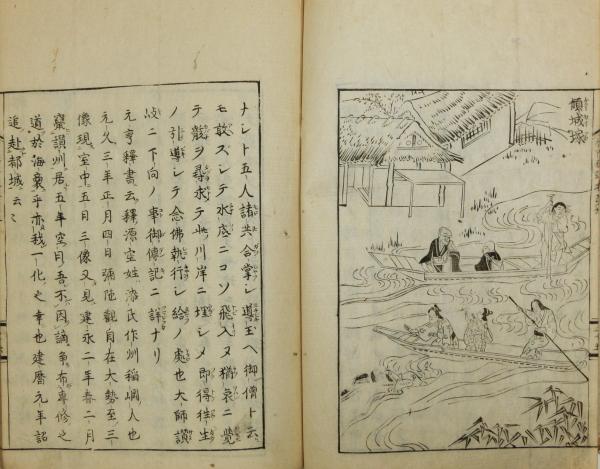 傾城塚
ナント五人諸共合掌シ道玉ヘ御僧ト云
モ敢ズシテ水底ニコソ飛入ヌ猶哀ニ覺
テ骸ヲ尋求テ此川岸ニ埋シメ即得往生
ノ引導シテ念佛執行シ給ノ處也大師讃
岐ニ下向ノ事御傳記ニ詳ナリ
元亨釋書云釋源空姓漆氏作州稲岡人也
元久三年正月四日彌陀觀自在大勢至三
像現室中五日三像又見建永二年春二月
竄讃州居五年空曰吾不因諍争布専修之
道於海裔乎亦我一化之幸也建暦元年詔
追赴都城云云